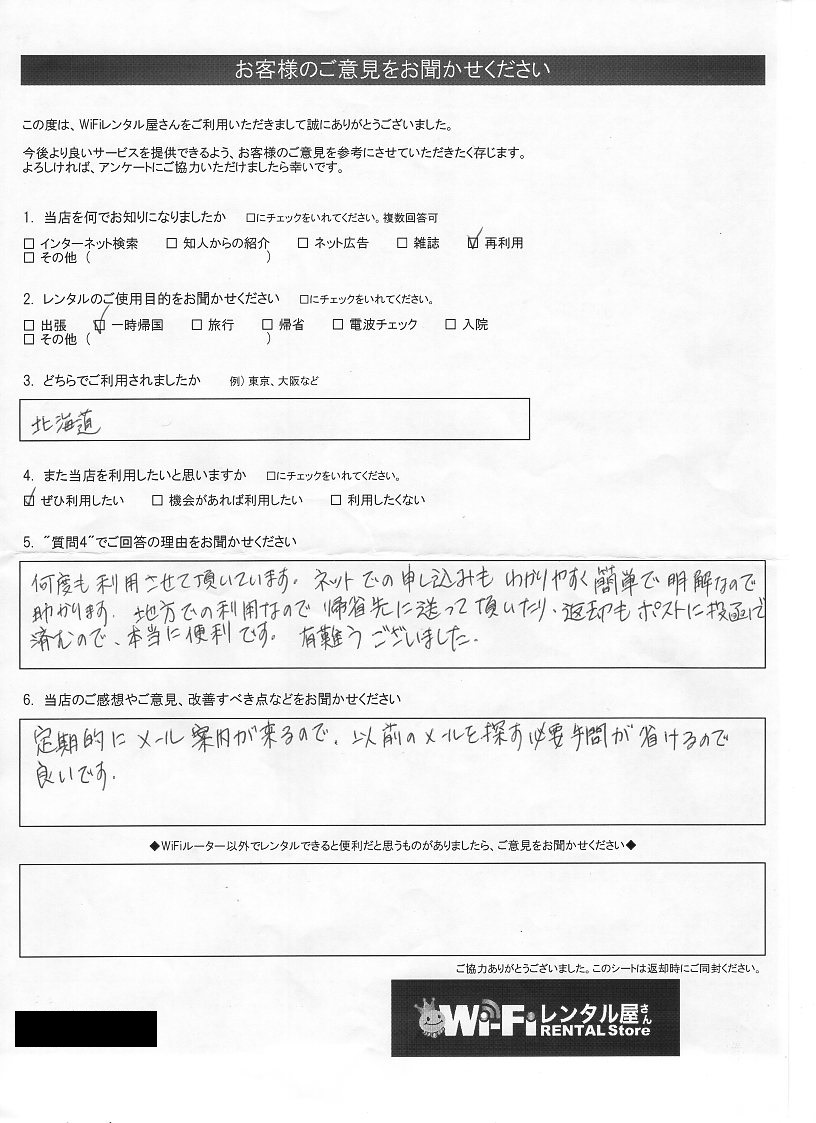 お客様のご意見をお聞かせください
この度は、WiFiレンタル屋さんをご利用いただきまして誠にありがとうございました。
今後より良いサービスを提供できるよう、お客様のご意見を参考にさせていただきたく存じます。
よろしければ、アンケートにご協力いただけましたら幸いです。
1. 当店を何でお知りになりましたか □にチェックをいれてください。複数回答可
□ インターネット検索 □ 知人からの紹介 □ ネット広告 □ 雑誌 ☑ 再利用
□ その他 ( )
2. レンタルのご使用目的をお聞かせください □にチェックをいれてください。
□ 出張 ☑ 一時帰国 □ 旅行 □ 帰省 □ 電波チェック □ 入院
□ その他 ( )
3. どちらでご利用されましたか 例) 東京、大阪など
北海道
4. また当店を利用したいと思いますか □にチェックをいれてください。
☑ ぜひ利用したい □ 機会があれば利用したい □ 利用したくない
5. "質問4"でご回答の理由をお聞かせください
何度も利用させて頂いています。ネットでの申し込みもわかりやすく簡単で明解なので
助かります。地方での利用なので帰省先に送って頂いたり、返却もポストに投函で
済むので、本当に便利です。有難うございました。
6. 当店のご感想やご意見、改善すべき点などをお聞かせください
定期的にメール案内が来るので、以前のメールを探す必要手間が省けるので
良いです。
◆WiFiルーター以外でレンタルできると便利だと思うものがありましたら、ご意見をお聞かせください◆
ご協力ありがとうございました。このシートは返却時にご同封ください。
Wi-Fiレンタル屋さん
RENTAL Store